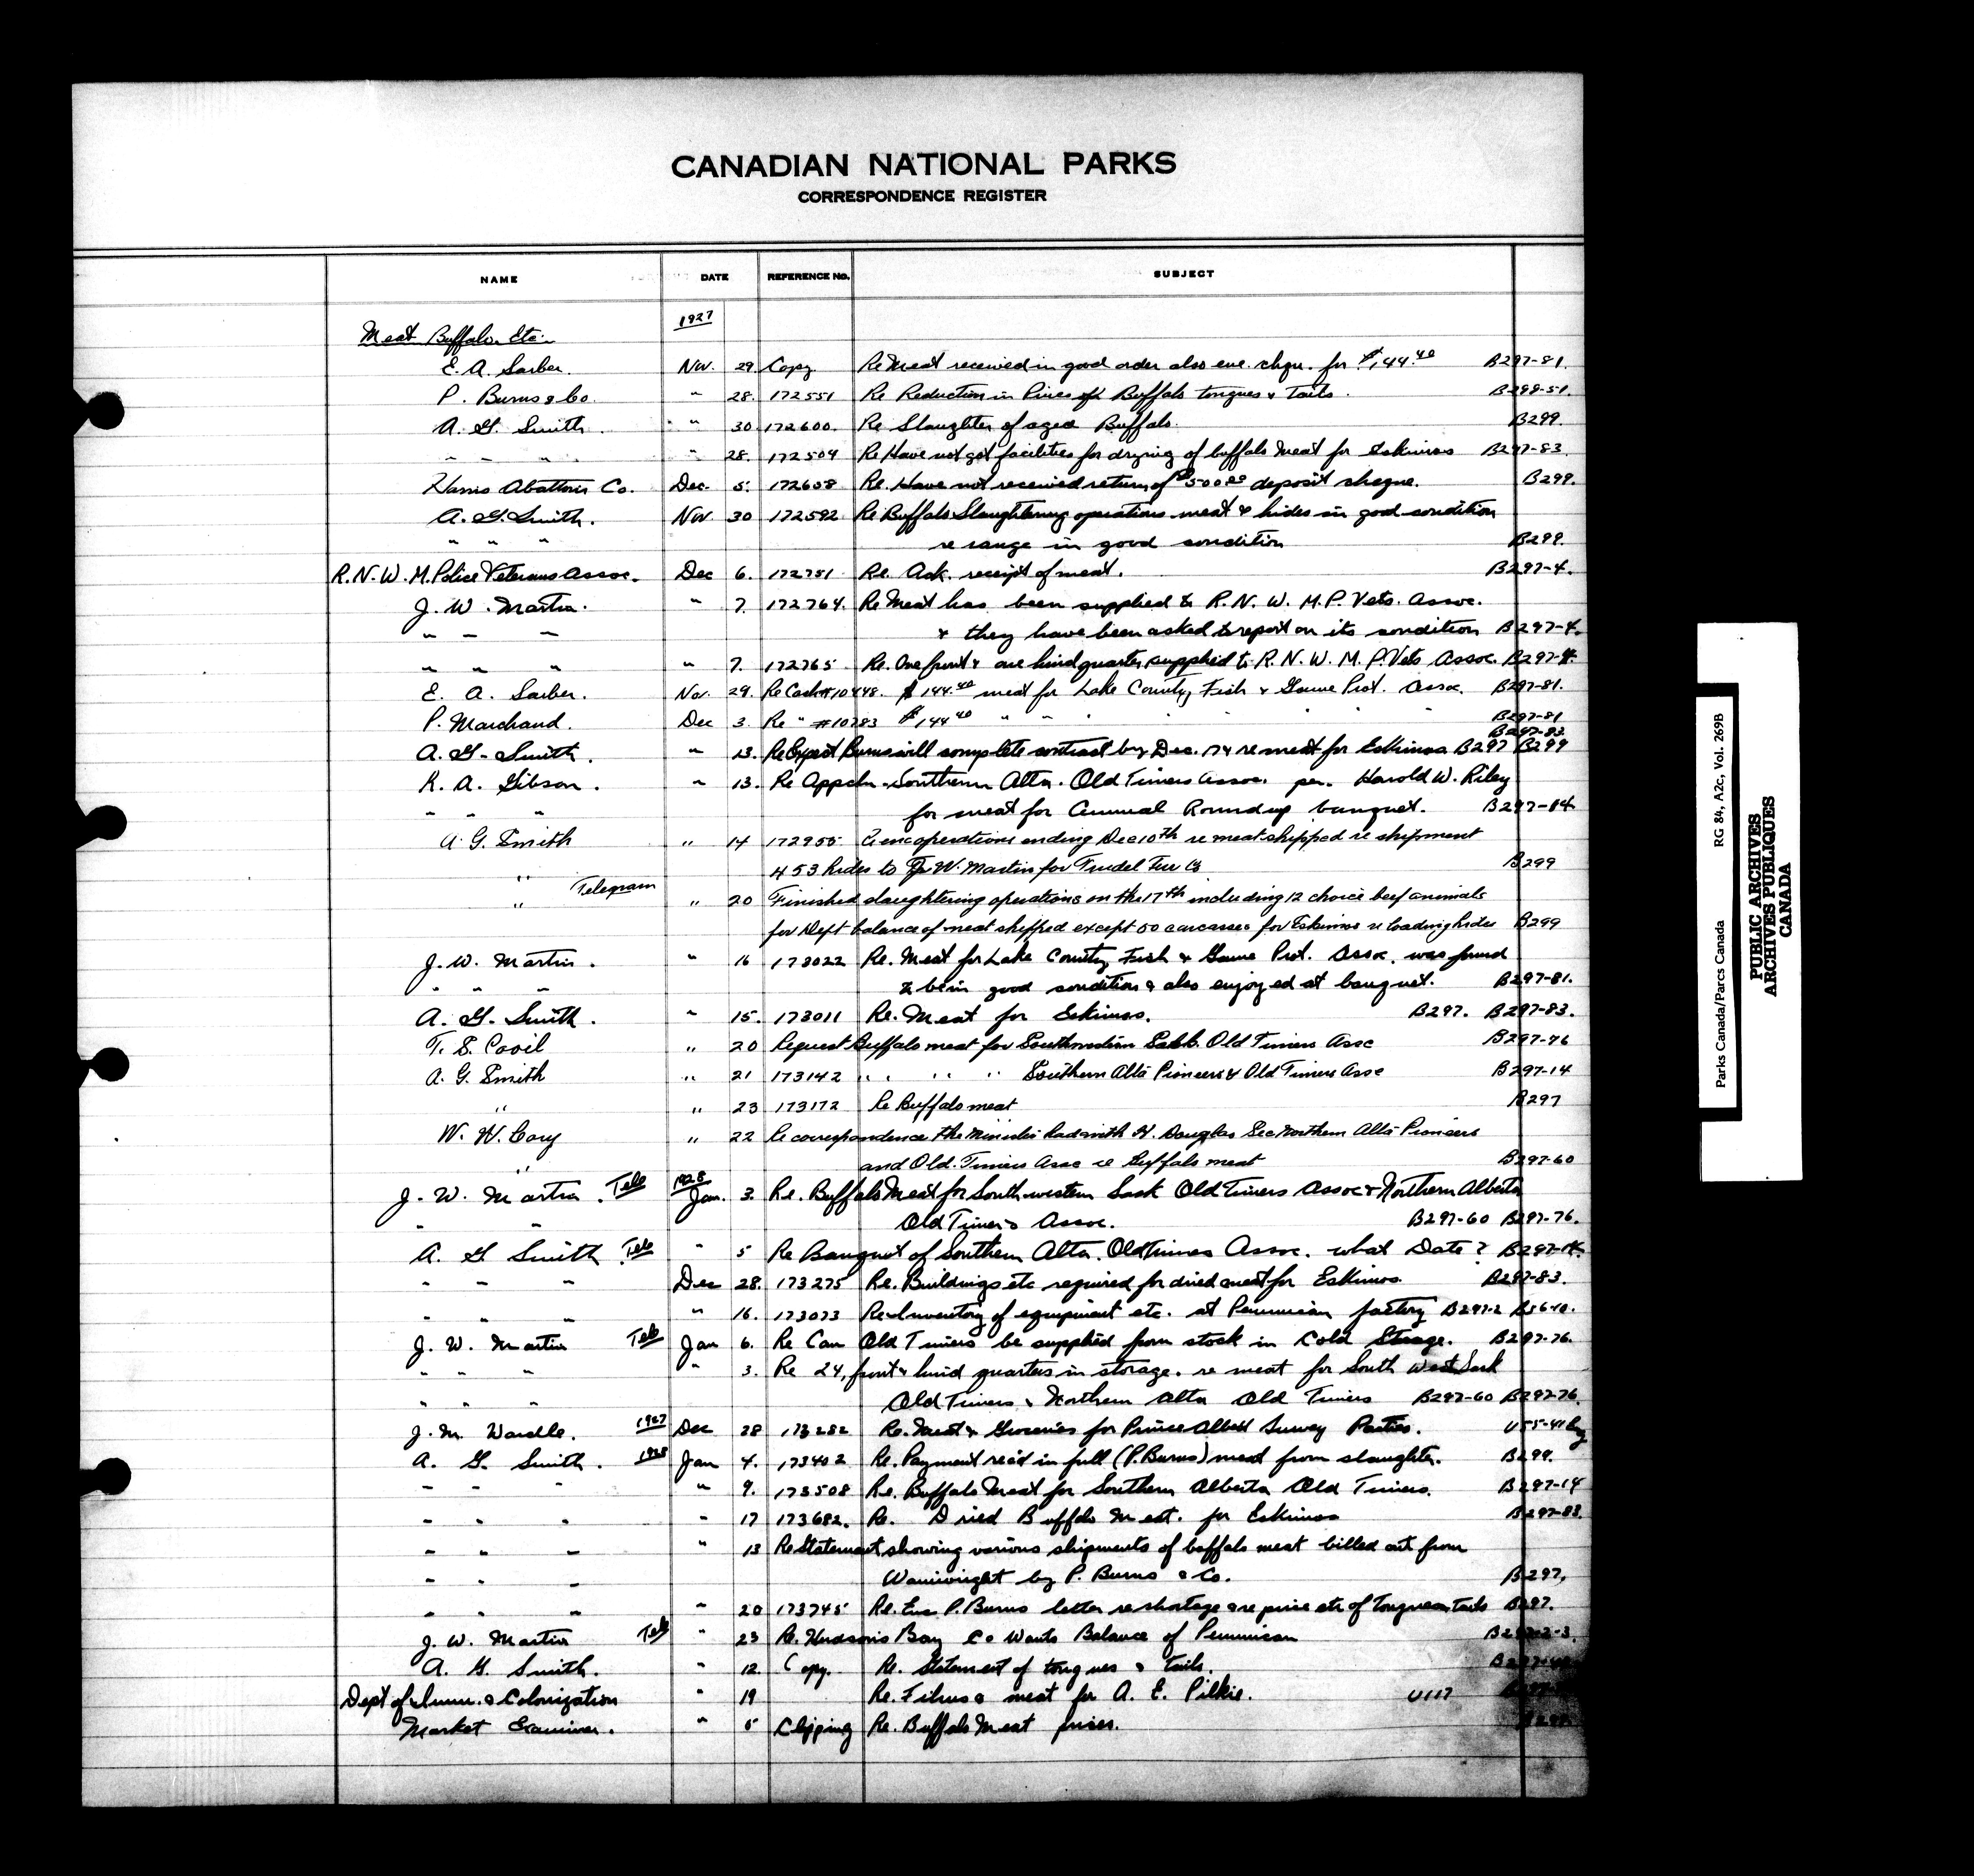 CANADIAN NATIONAL PARKS
CORRESPONDENCE REGISTER
NAME DATE REFERENCE No. SUBJECT
1927
Meat Buffalo. Etc.
E. A. Sarber. Nov. 29 Copy. Re Meat received in good order also enc. chqu. for $144.40 B297-81.
P. Burns & Co. " 28. 172551 Re Reduction in Prices of Buffalo tongues & Tails. B298-51.
A. G. Smith. " 30 172600. Re Slaughter of aged Buffalo. B299.
" " " " 28. 172504 Re Have not got facilities for drying of buffalo meat for Eskimos B297-83.
Harris Abattoir Co. Dec. 5. 172658 Re. Have not received return of $500.00 deposit cheque. B299.
A. G. Smith. Nov 30 172592 Re Buffalo Slaughtering operations meat & hides in good condition
" " " re range in good condition B299.
R.N.W.M. Police Veterans Assoc. Dec 6. 172751 Re. Ack. receipt of meat. B297-4.
J. W. Martin. " 7. 172764. Re Meat has been supplied to R. N. W. M. P. Vets. Assoc.
" " " & they have been asked to report on its condition B297-4.
" " " " 7. 172765 Re. One front & one hind quarter supplied to R. N. W. M. P. Vets Assoc. B297-4.
E. A. Sarber. Nov. 29. Re Cash #10448. $144.40 meat for Lake County Fish & Game Prot. Assoc. B297-81.
P. Marchand. Dec 3. Re " #10783 $144.40 " " " B297-81
B297-83
A. G. Smith. " 13. Re Expect Burns will complete contract by Dec. 17 & re meat for Eskimos B297 B299
R. A. Gibson. " 13. Re Appcln. Southern Alta. Old Timers Assoc. per. Harold W. Riley
" " " for meat for Annual Roundup banquet. B297-14.
A. G. Smith " 14 172955 operations ending Dec 10th re meat shipped re shipment
453 hides to J. W. Martin for B299
" Telegram " 20 Finished slaughtering operations on the 17th including 12 choice beef animals
for Dept balance of meat shipped except 50 carcasses for Eskimos re loading hides B299
J. W. Martin. " 16 173022 Re. Meat for Lake County Fish & Game Prot. Assoc. was found
" " " to be in good condition & also enjoyed at banquet. B297-81.
A. G. Smith. " 15. 173011 Re. Meat for Eskimos. B297. B297-83.
T. S. " 20 Request Buffalo meat for Southwestern Sask. Old Timers Assc B297-76
A. G. Smith " 21 173142 " " " " Southern Alta Pioneers & Old Timers Assc B297-14
" " 23 173172 Re Buffalo meat B297
W. W. Cory " 22 Re correspondence the Minister had with H. Douglas Sec Northern Alta Pioneers
" and Old. Timers Assc re Buffalo meat B297-60
J. W. Martin. Tele 1928 Jan. 3. Re. Buffalo Meat for South-western Sask Old Timers Assoc & Northern Alberta
" " Old Timers Assoc. B297-60 B297-76.
A. G. Smith. Tele " 5 Re Banquet of Southern Alta. Old Timers Assoc. what Date? B297-14.
" " " Dec 28. 173275 Re. Buildings etc required for dried meat for Eskimos. B297-83.
" " " " 16. 173073 Re. Inventory of equipment etc. at Pemmican factory B297-2
J. W. Martin Tele Jan 6. Re Can Old Timers be supplied from stock in Cold Storage. B297-76.
" " " " 3. Re 24, front & hind quarters in storage. re meat for South West Sask
" " " Old Timers & Northern Alta Old Timers B297-60 B297-76.
J. M. Wardle. 1927 Dec 28 173282 Re. Meat & Groceries for Prince Albert Survey Parties.
A. G. Smith. 1928 Jan 4. 173402 Re. Payment rec'd in full (P. Burns) meat from slaughter. B299.
" " " " 9. 173508 Re. Buffalo Meat for Southern Alberta Old Timers. B297-14
" " " " 17 173682. Re. Dried Buffalo Meat. for Eskimos B297-83.
" " " " 13 Re Statement showing various shipments of buffalo meat billed out from
" " " Wainwright by P. Burns & Co. B297.
" " " " 20 173745 Re. Enc P. Burns letter re shortage & re price etc of Tongues & Tails B297.
J. W. Martin Tele " 23 Re. Hudson's Bay Co Wants Balance of Pemmican
A. G. Smith. " 12. Copy. Re. Statement of tongues & Tails.
Dept of Imm. & Colonization " 19 Re. Films & meat for A. E. Pilkie. U117
Market Examiner. " 5 Clipping Re. Buffalo Meat prices.
Parks Canada/Parcs Canada RG 84, A2c, Vol. 269B
PUBLIC ARCHIVES
ARCHIVES PUBLIQUES
CANADA